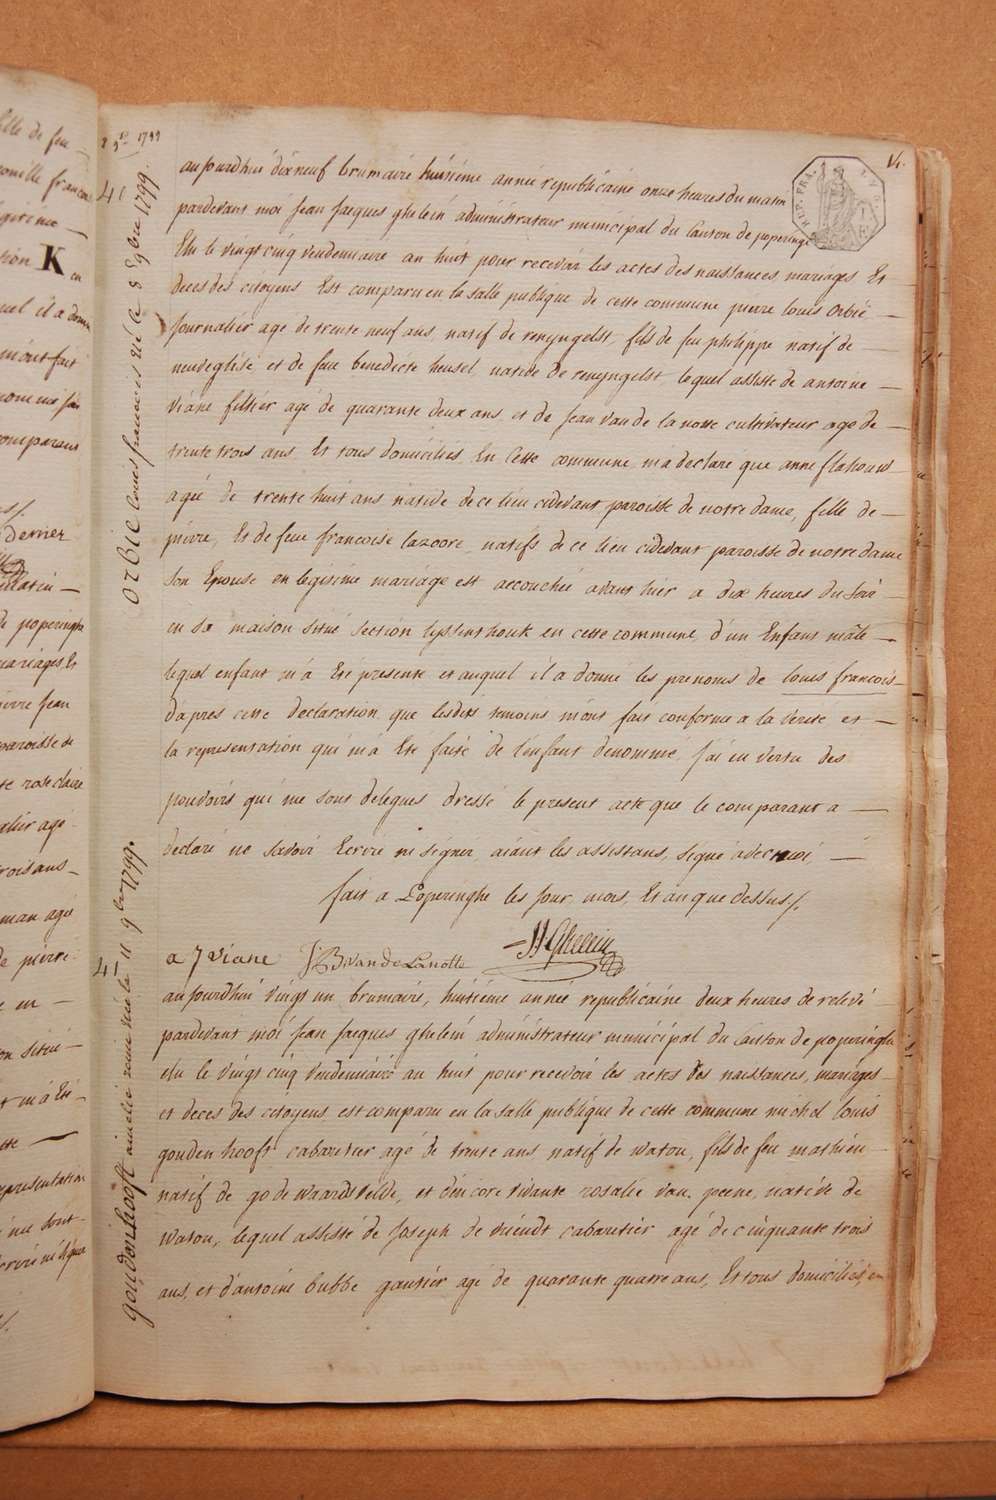 14.
REP. FRA.
aujourdhui dixneuf brumaire huitiéme année républicaine onze heures du matin
pardevant moi Jean Jacques ghelein administrateur municipal du Canton de poperinge
Elu le vingt cinq vendemiaire an huit pour recevoir les actes des naissances, mariages Et
deces des citoyens Est comparu en la salle publique de cette commune pierre louis orbie —
Journalier age de trente neuf ans, natif de renyngelst, fils de feu philippe natif de —
neuveglise, et de feue benedicte heusel, native de renyngelst, lequel assisté de antoine —
Viane filtier agé de quarante deux ans et de Jean van de la notte cultivateur age de —
trente trois ans Et tous domiciliés En Cette commune, m'a declaré que anne flahouw
agée de trente huit ans native de ce lieu cidevant paroisse de notre dame, fille de —
pierre, Et de feue francoise lazoore, natifs de ce lieu cidevant paroisse de notre dame
son Epouse en legitime mariage est accouchée avant hier a dix heures du soir —
en sa maison située section lyssenthouk en cette commune, d'un Enfant mâle —
lequel enfant m'a Ete presenté et auquel il a donné les prenoms de louis francois —
d'apres cette declaration que lesdits temoins m'ont fait conforme a la verité et —
la representation qui m'a Ete faite de l'enfant denommé, J'ai en vertu des
pouvoirs qui me sont delegues dressé le present acte que le comparant a —
declaré ne savoir Ecrire ni signer, aiant les assistans, signé avec moi, —
fait a Poperinghe les jour, mois, Et an que dessus /.
a J viane J: B: van de Lanotte JJGhelein
aujourdhui vingt un brumaire, huitiéme année républicaine deux heures de relevé
pardevant moi Jean Jacques ghelein administrateur municipal du Canton de poperinghe
elu le vingt cinq vendemiaire an huit pour recevoir les actes des naissances, mariages —
et deces des citoyens est comparu en la salle publique de cette commune michel louis
gouden hooft cabaretier agé de trente ans natif de watou, fils de feu mathieu
natif de godewaersvelde, et d'encore vivante rosalie van peene, native de
watou, lequel assisté de Joseph de vriendt cabaretier agé de cinquante trois
ans, et d'antoine bubbe gantier agé de quarante quatre ans, Et tous domiciliés en
9bre 1799
ORBIE louis francois né le 8 9bre 1799.
45
goudenhooft amelie née le 11 9bre 1799.
K
dernier
de poperinghe
mariages, Et
pierre Jean
paroisse de
rose claire
trois ans —
de pierre
m'ont fait
comparant
representation